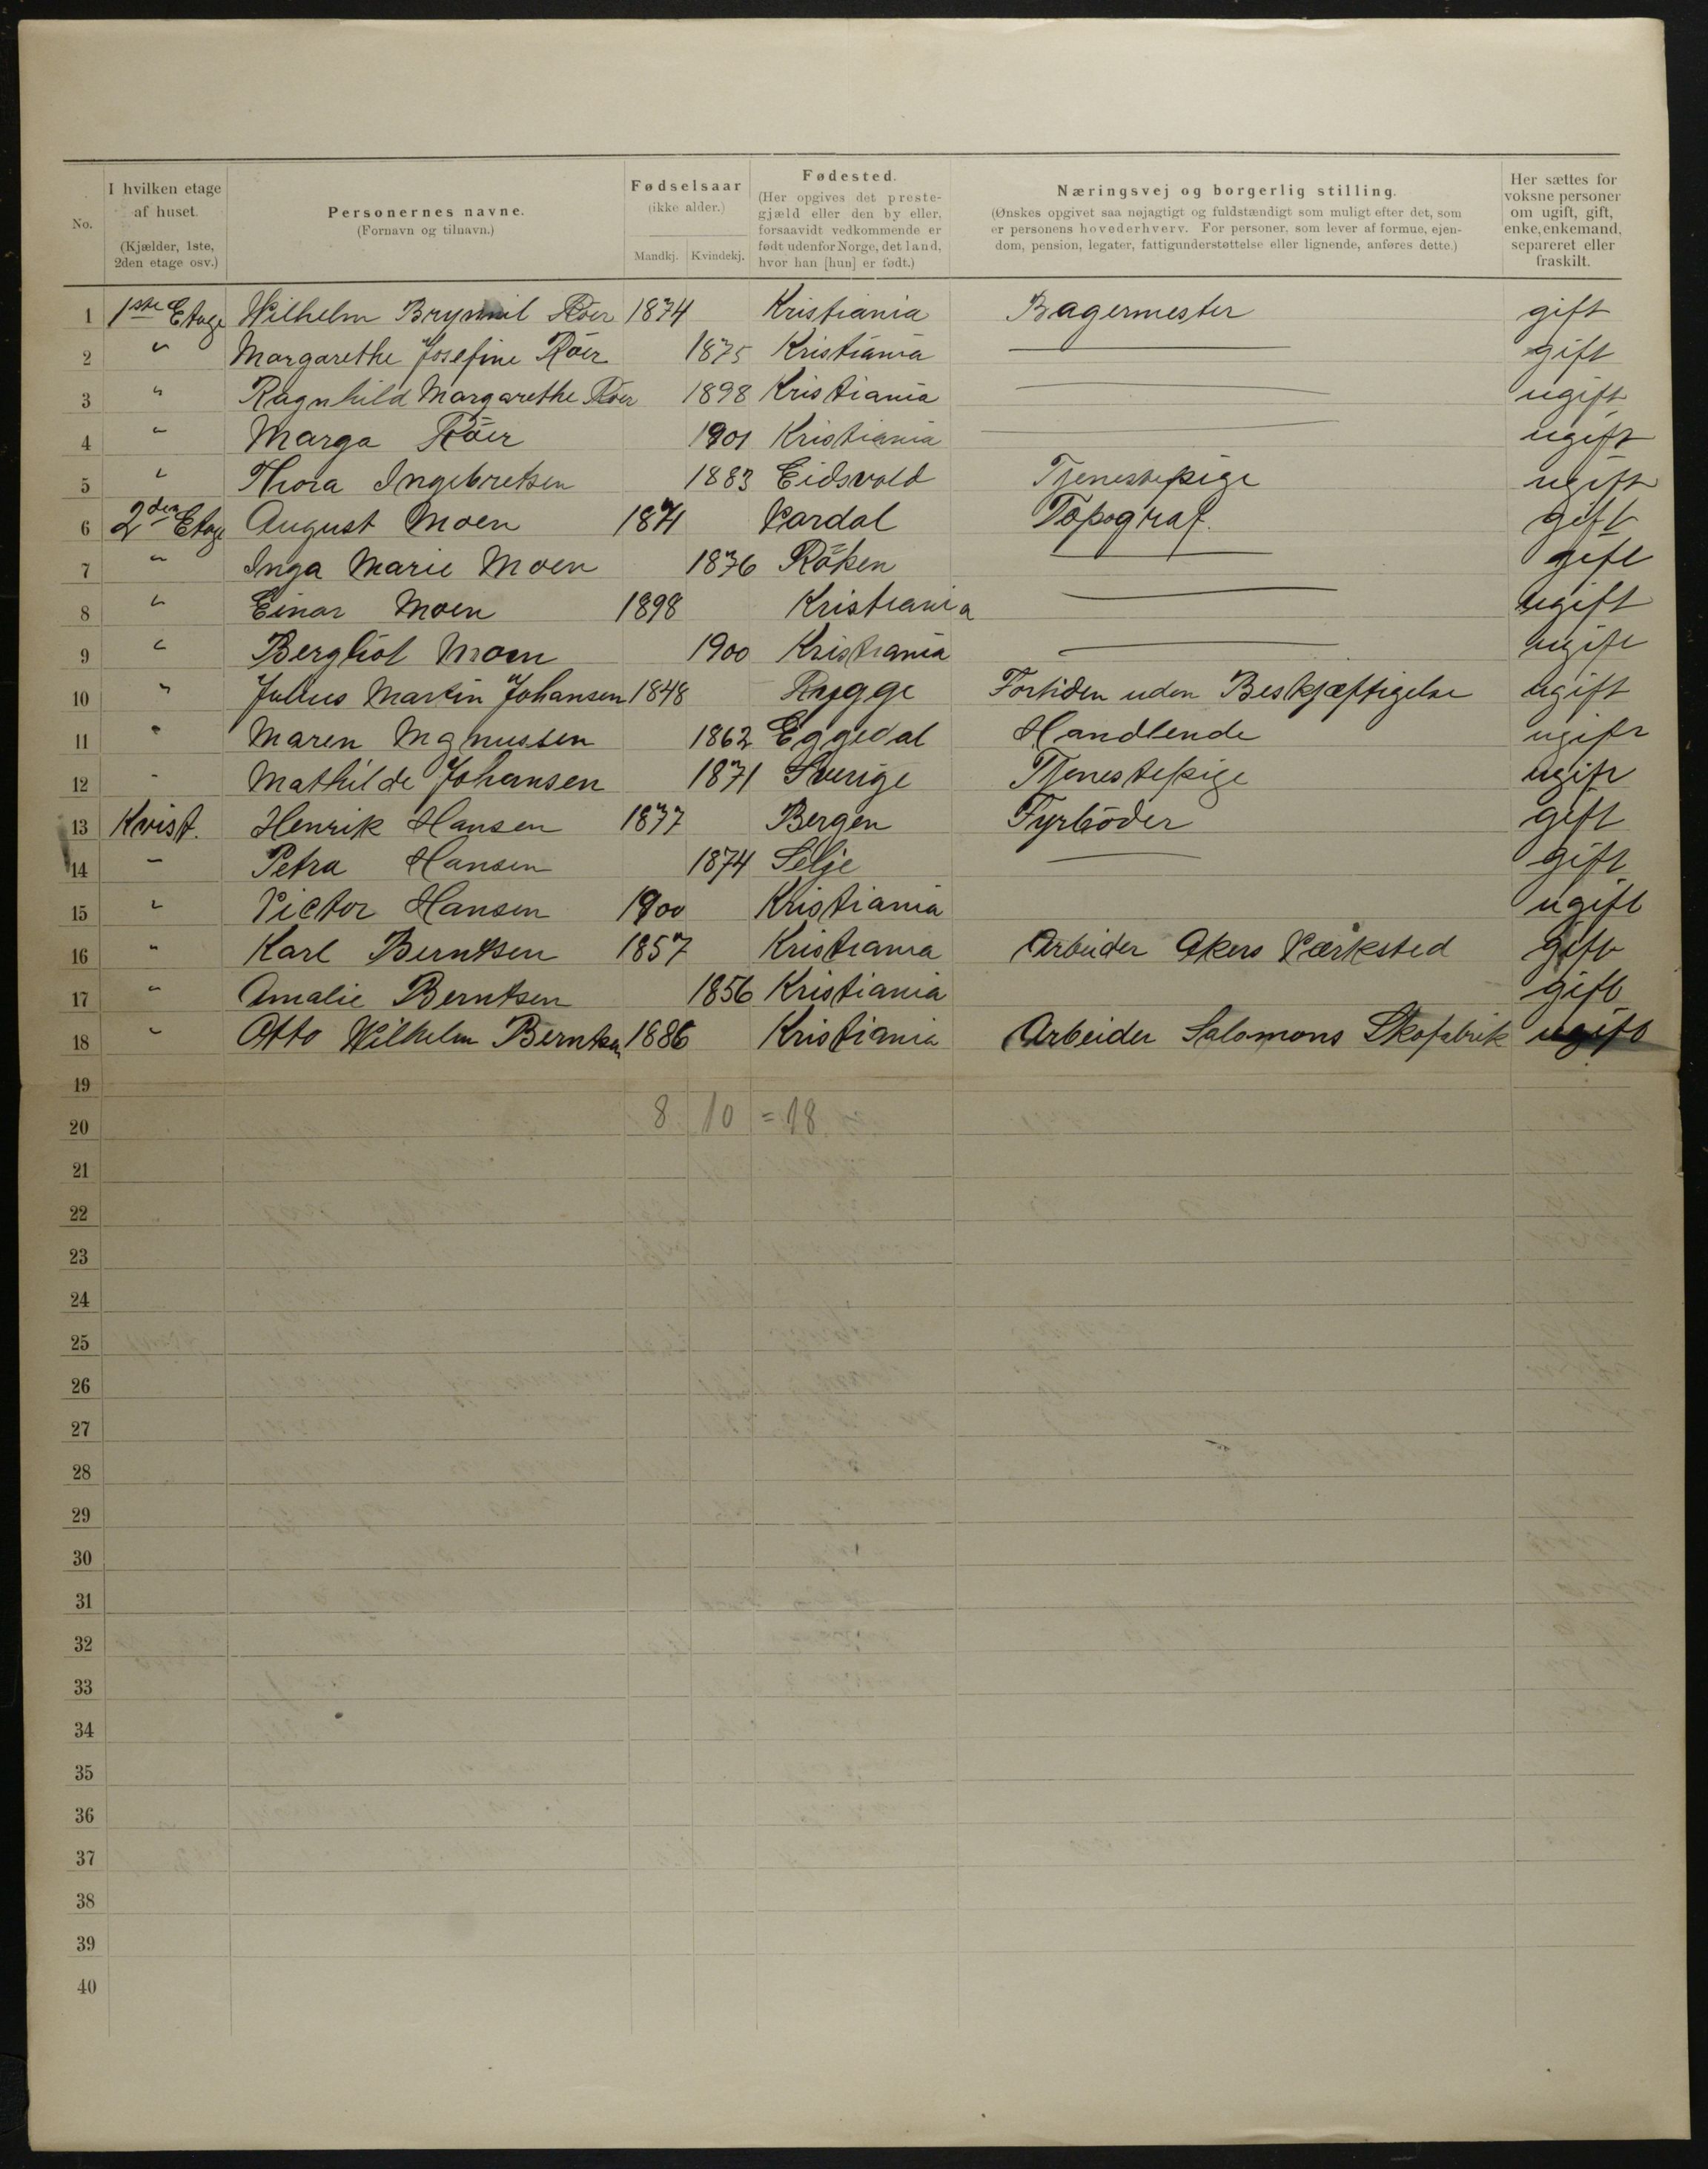 No.
I hvilken etage af huset. (Kjælder, 1ste, 2den etage osv.)
Personernes navne. (Fornavn og tilnavn.)
Fødselsaar (ikke alder.) Mandkj. Kvindekj.
Fødested. (Her opgives det prestegjæld eller den by eller, forsaavidt vedkommende er født udenfor Norge, det land, hvor han [hun] er født.)
Næringsvej og borgerlig stilling. (Ønskes opgivet saa nøjagtigt og fuldstændigt som muligt efter det, som er personens hovederhverv. For personer, som lever af formue, ejendom, pension, legater, fattigunderstøttelse eller lignende, anføres dette.)
Her sættes for voksne personer om ugift, gift, enke, enkemand, separeret eller fraskilt.
1 1ste Etage Wilhelm Röer 1874 Kristiania Bagermester gift
2 " Margarethe Josefine Röer 1875 Kristiania — gift
3 " Ragnhild Margarethe Röer 1898 Kristiania — ugift
4 " Marga Röer 1901 Kristiania — ugift
5 " Thora Ingebretsen 1883 Eidsvold Tjenestepige ugift
6 2den Etage August Moen 1871 Vardal Topograf. gift
7 " Inga Marie Moen 1876 Röken — gift
8 " Einar Moen 1898 Kristiania — ugift
9 " Bergliot Moen 1900 Kristiania — ugift
10 " Julius Martin Johansen 1848 Rygge Fortiden uden Beskjæftigelse ugift
11 " Maren Mgnussen 1862 Eggedal Handlende ugift
12 " Mathilde Johansen 1871 Sverige Tjenestepige ugift
13 Kvist. Henrik Hansen 1877 Bergen Fyrböder gift
14 " Petra Hansen 1874 Selje — gift
15 " Victor Hansen 1900 Kristiania ugift
16 " Karl Berntsen 1857 Kristiania Arbeider Akers Værksted gift
17 " Amalie Berntsen 1856 Kristiania gift
18 " Otto Wilhelm Berntsen 1886 Kristiania Arbeider Salomons Skofabrik ugift
19
20 8 10 = 18
21
22
23
24
25
26
27
28
29
30
31
32
33
34
35
36
37
38
39
40